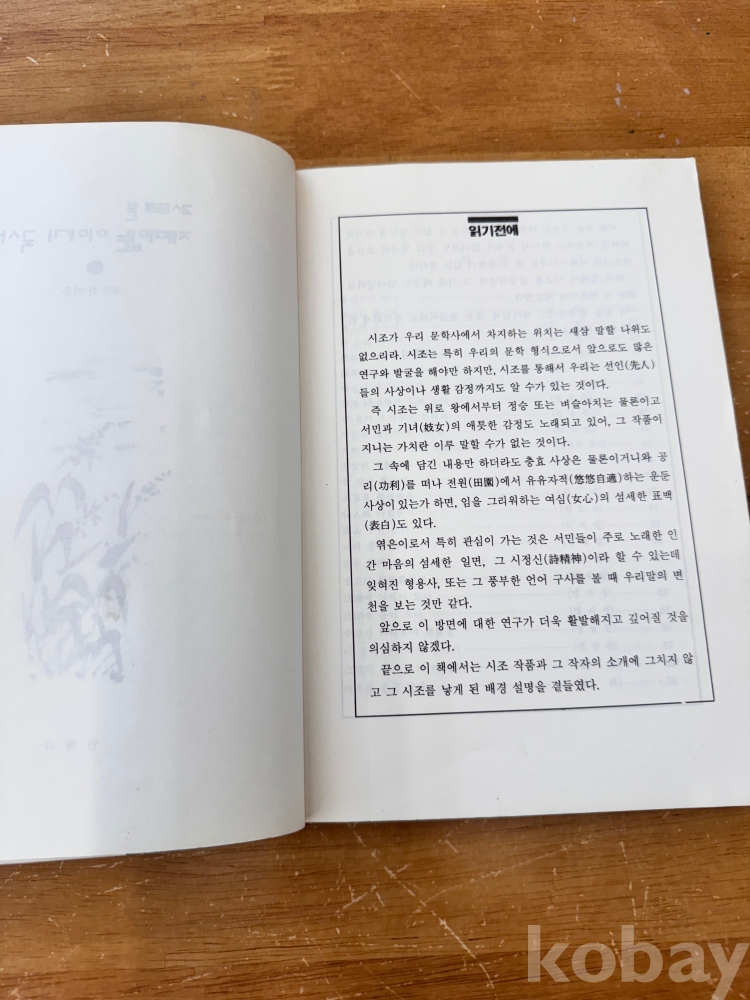 읽기전에
시조가 우리 문학사에서 차지하는 위치는 새삼 말할 나위도
없으리라. 시조는 특히 우리의 문학 형식으로서 앞으로도 많은
연구와 발굴을 해야만 하지만, 시조를 통해서 우리는 선인(先人)
들의 사상이나 생활 감정까지도 알 수가 있는 것이다.
즉 시조는 위로 왕에서부터 정승 또는 벼슬아치는 물론이고
서민과 기녀(妓女)의 애틋한 감정도 노래되고 있어, 그 작품이
지니는 가치란 이루 말할 수가 없는 것이다.
그 속에 담긴 내용만 하더라도 충효 사상은 물론이거니와 공
리(功利)를 떠나 전원(田園)에서 유유자적(悠悠自適)하는 운둔
사상이 있는가 하면, 임을 그리워하는 여심(女心)의 섬세한 표백
(表白)도 있다.
엮은이로서 특히 관심이 가는 것은 서민들이 주로 노래한 인
간 마음의 섬세한 일면, 그 시정신(詩精神)이라 할 수 있는데
잊혀진 형용사, 또는 그 풍부한 언어 구사를 볼 때 우리말의 변
천을 보는 것만 같다.
앞으로 이 방면에 대한 연구가 더욱 활발해지고 깊어질 것을
의심하지 않겠다.
끝으로 이 책에서는 시조 작품과 그 작자의 소개에 그치지 않
고 그 시조를 낳게 된 배경 설명을 곁들였다.
kobay